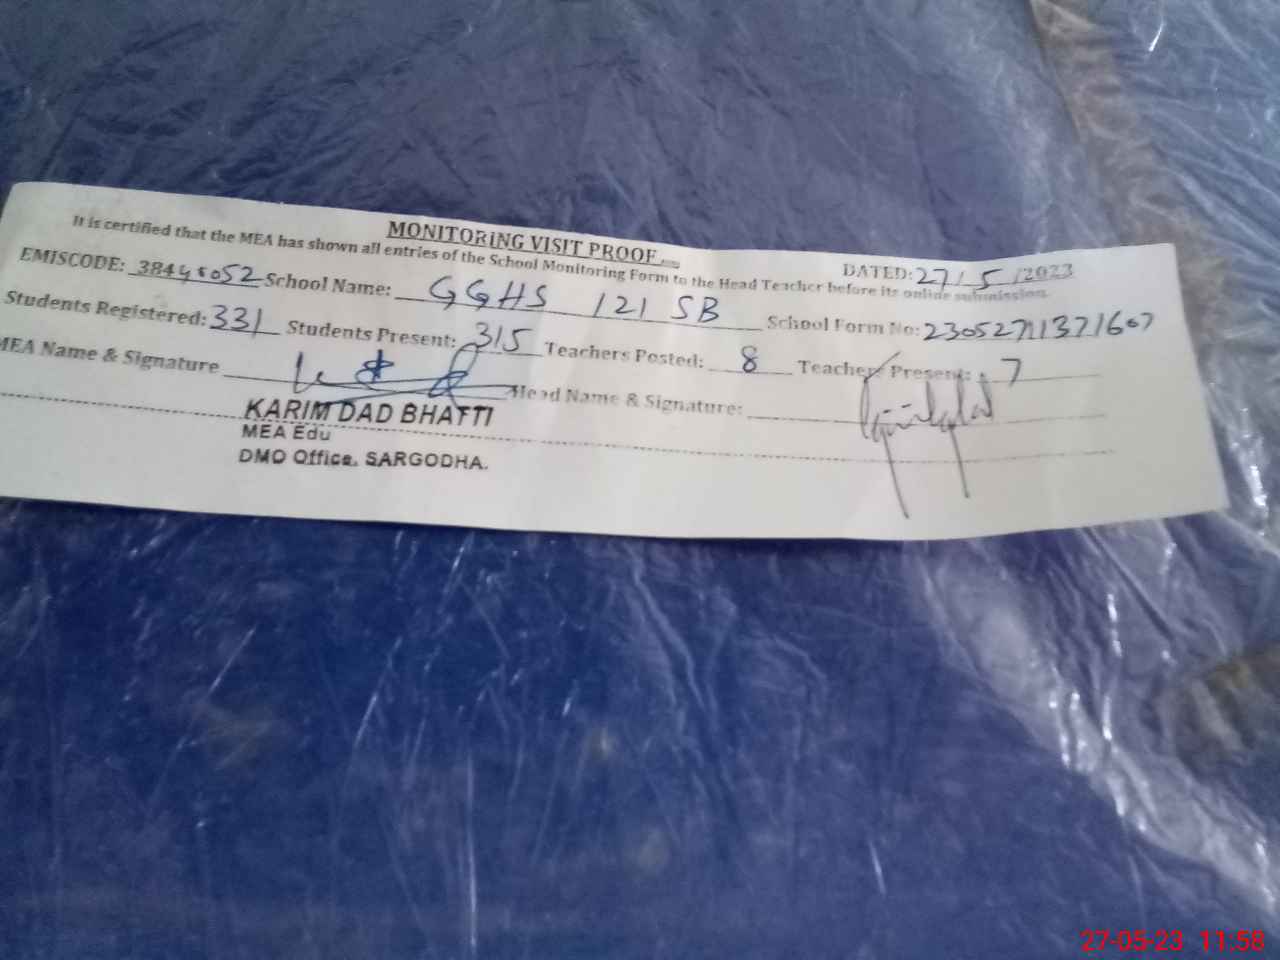 MONITORING VISIT PROOF
DATED: 27/5/2023
It is certified that the MEA has shown all entries of the School Monitoring Form to the Head Teacher before its online submission.
EMISCODE: 38440052 School Name: GGHS 121 SB School Form No: 23052711371607
Students Registered: 331 Students Present: 315 Teachers Posted: 8 Teachers Present: 7
MEA Name & Signature Head Name & Signature:
KARIM DAD BHATTI
MEA Edu
DMO Office, SARGODHA.
27-05-23 11:58